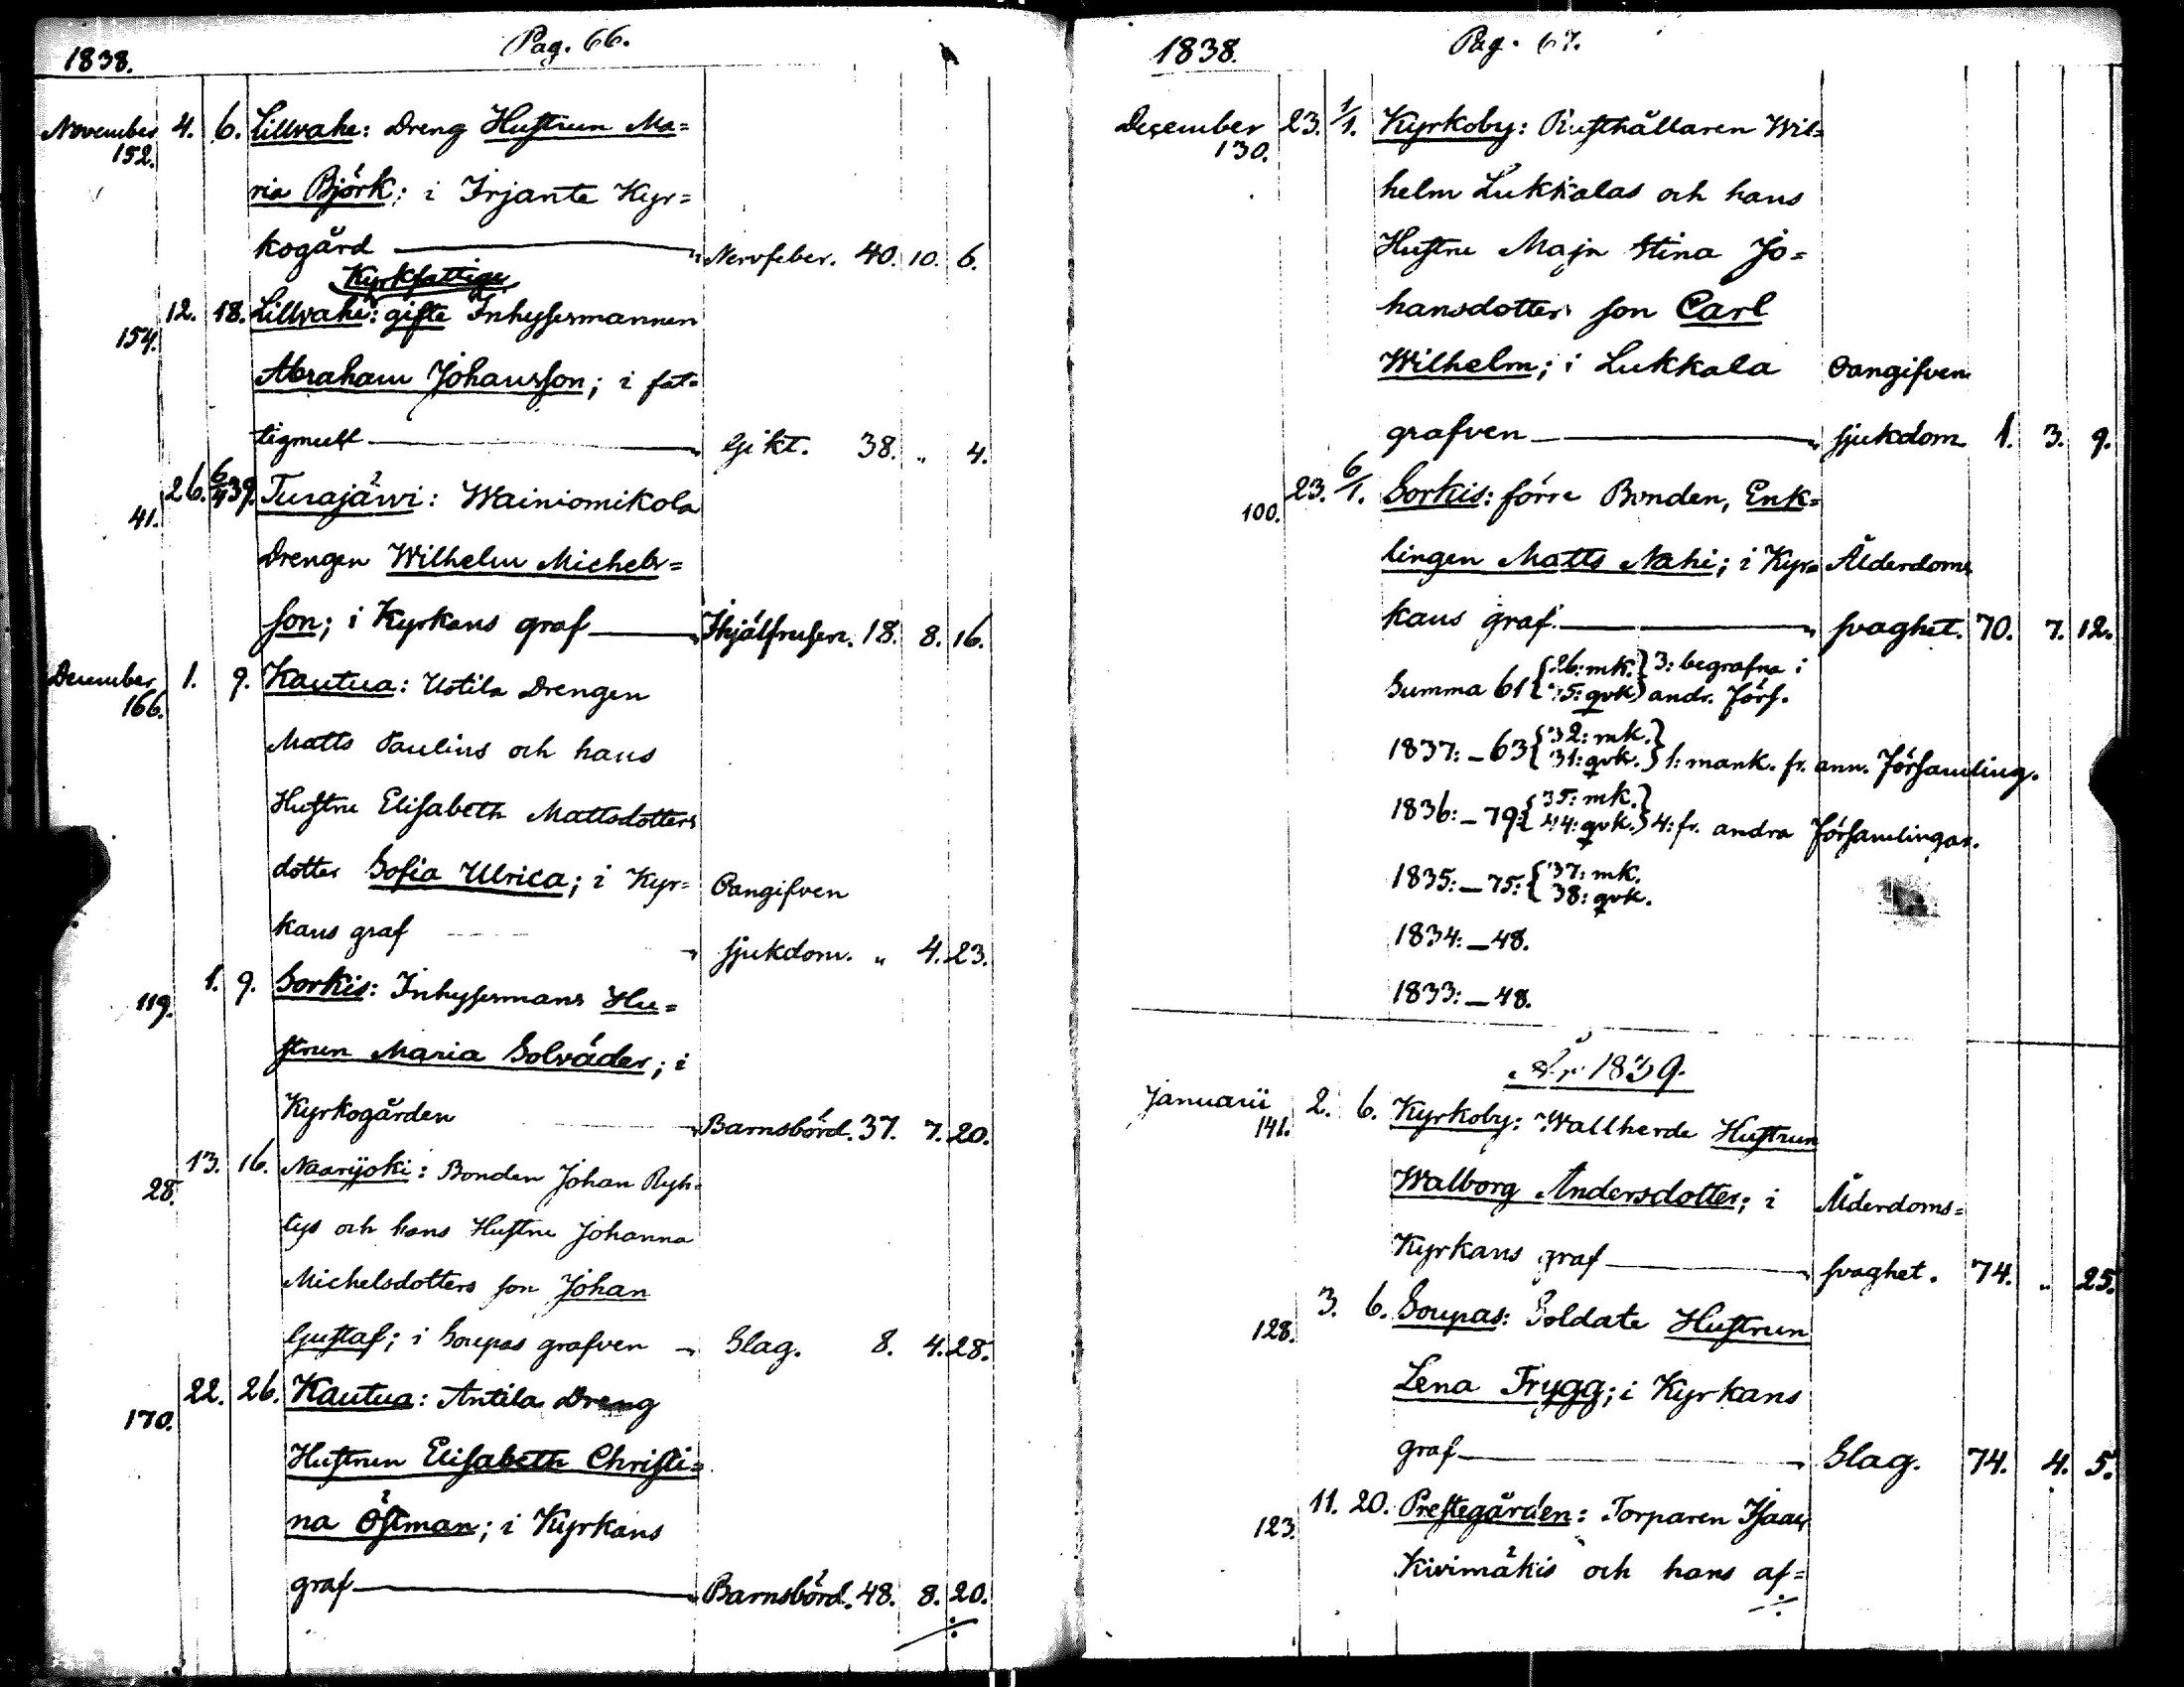 1838. Pag. 66.
November 4. 6. Lillvahe: Dreng Hustrun Ma=
152.
ria Björk; i Irjante Kyr=
kogård — Nervfeber. 40. 10. 6.
Kyrkfattige
12. 18. Lillvahe: gifte Inhysesmannen
154.
Abraham Johansson; i fat=
tigmull — Gikt. 38. " 4.
26. 6/4 39. Turajärvi: Wainiomikola
41.
Drengen Wilhelm Michels=
son; i Kyrkans graf — Ihjälfrusen. 18. 8. 16.
December 1. 9. Kautua: Ustila Drengen
166.
Matts Paulins och hans
Hustru Elisabeth Mattsdotters
dotter Sofia Ulrica; i Kyr= Oangifven
kans graf — sjukdom. " 4. 23.
1. 9. Sorkis: Inhysesmans Hu=
119.
strun Maria Solväder; i
Kyrkogården — Barnsbörd. 37. 7. 20.
13. 16. Naarijoki: Bonden Johan Ryh=
28.
tys och hans Hustru Johanna
Michelsdotters son Johan
Gustaf; i Soupas grafven — Slag. 8. 4. 28.
22. 26. Kautua: Antila Dreng
170.
Hustrun Elisabeth Christi=
na Östman; i Kyrkans
graf — Barnsbörd. 48. 8. 20.
÷
1838. Pag. 67.
December 23. 1/1. Kyrkoby: Rusthållaren Wil=
130.
helm Lukkalas och hans
Hustru Maja Stina Jo=
hansdotters son Carl
Wilhelm; i Lukkala Oangifven
grafven — sjukdom 1. 3. 9.
23. 6/1. Sorkis: förre Bonden, Enk=
100.
lingen Matts Nahi; i Kyr= Ålderdoms
kans graf. — svaghet. 70. 7. 12.
Summa 61 { 26: mk. } 3: begrafne i
35: qvk. andr. Förs.
1837: — 63 { 32: mk. }
31: qvk. 1: mank. fr. ann. Församling.
1836: — 79: { 35: mk. }
44: qvk. 4: fr. andra Församlingar.
1835: — 75: { 37: mk.
38: qvk.
1834: — 48.
1833: — 48.
År 1839.
Januarii 2. 6. Kyrkoby: Wallherde Hustrun
141.
Walborg Andersdotter; i Ålderdoms=
Kyrkans graf — svaghet. 74. " 25.
3. 6. Soupas: Soldate Hustrun
128.
Lena Trygg; i Kyrkans
graf — Slag. 74. 4. 5.
11. 20. Prestegården: Torparen Isaac
123.
Kivimäkis och hans af=
÷